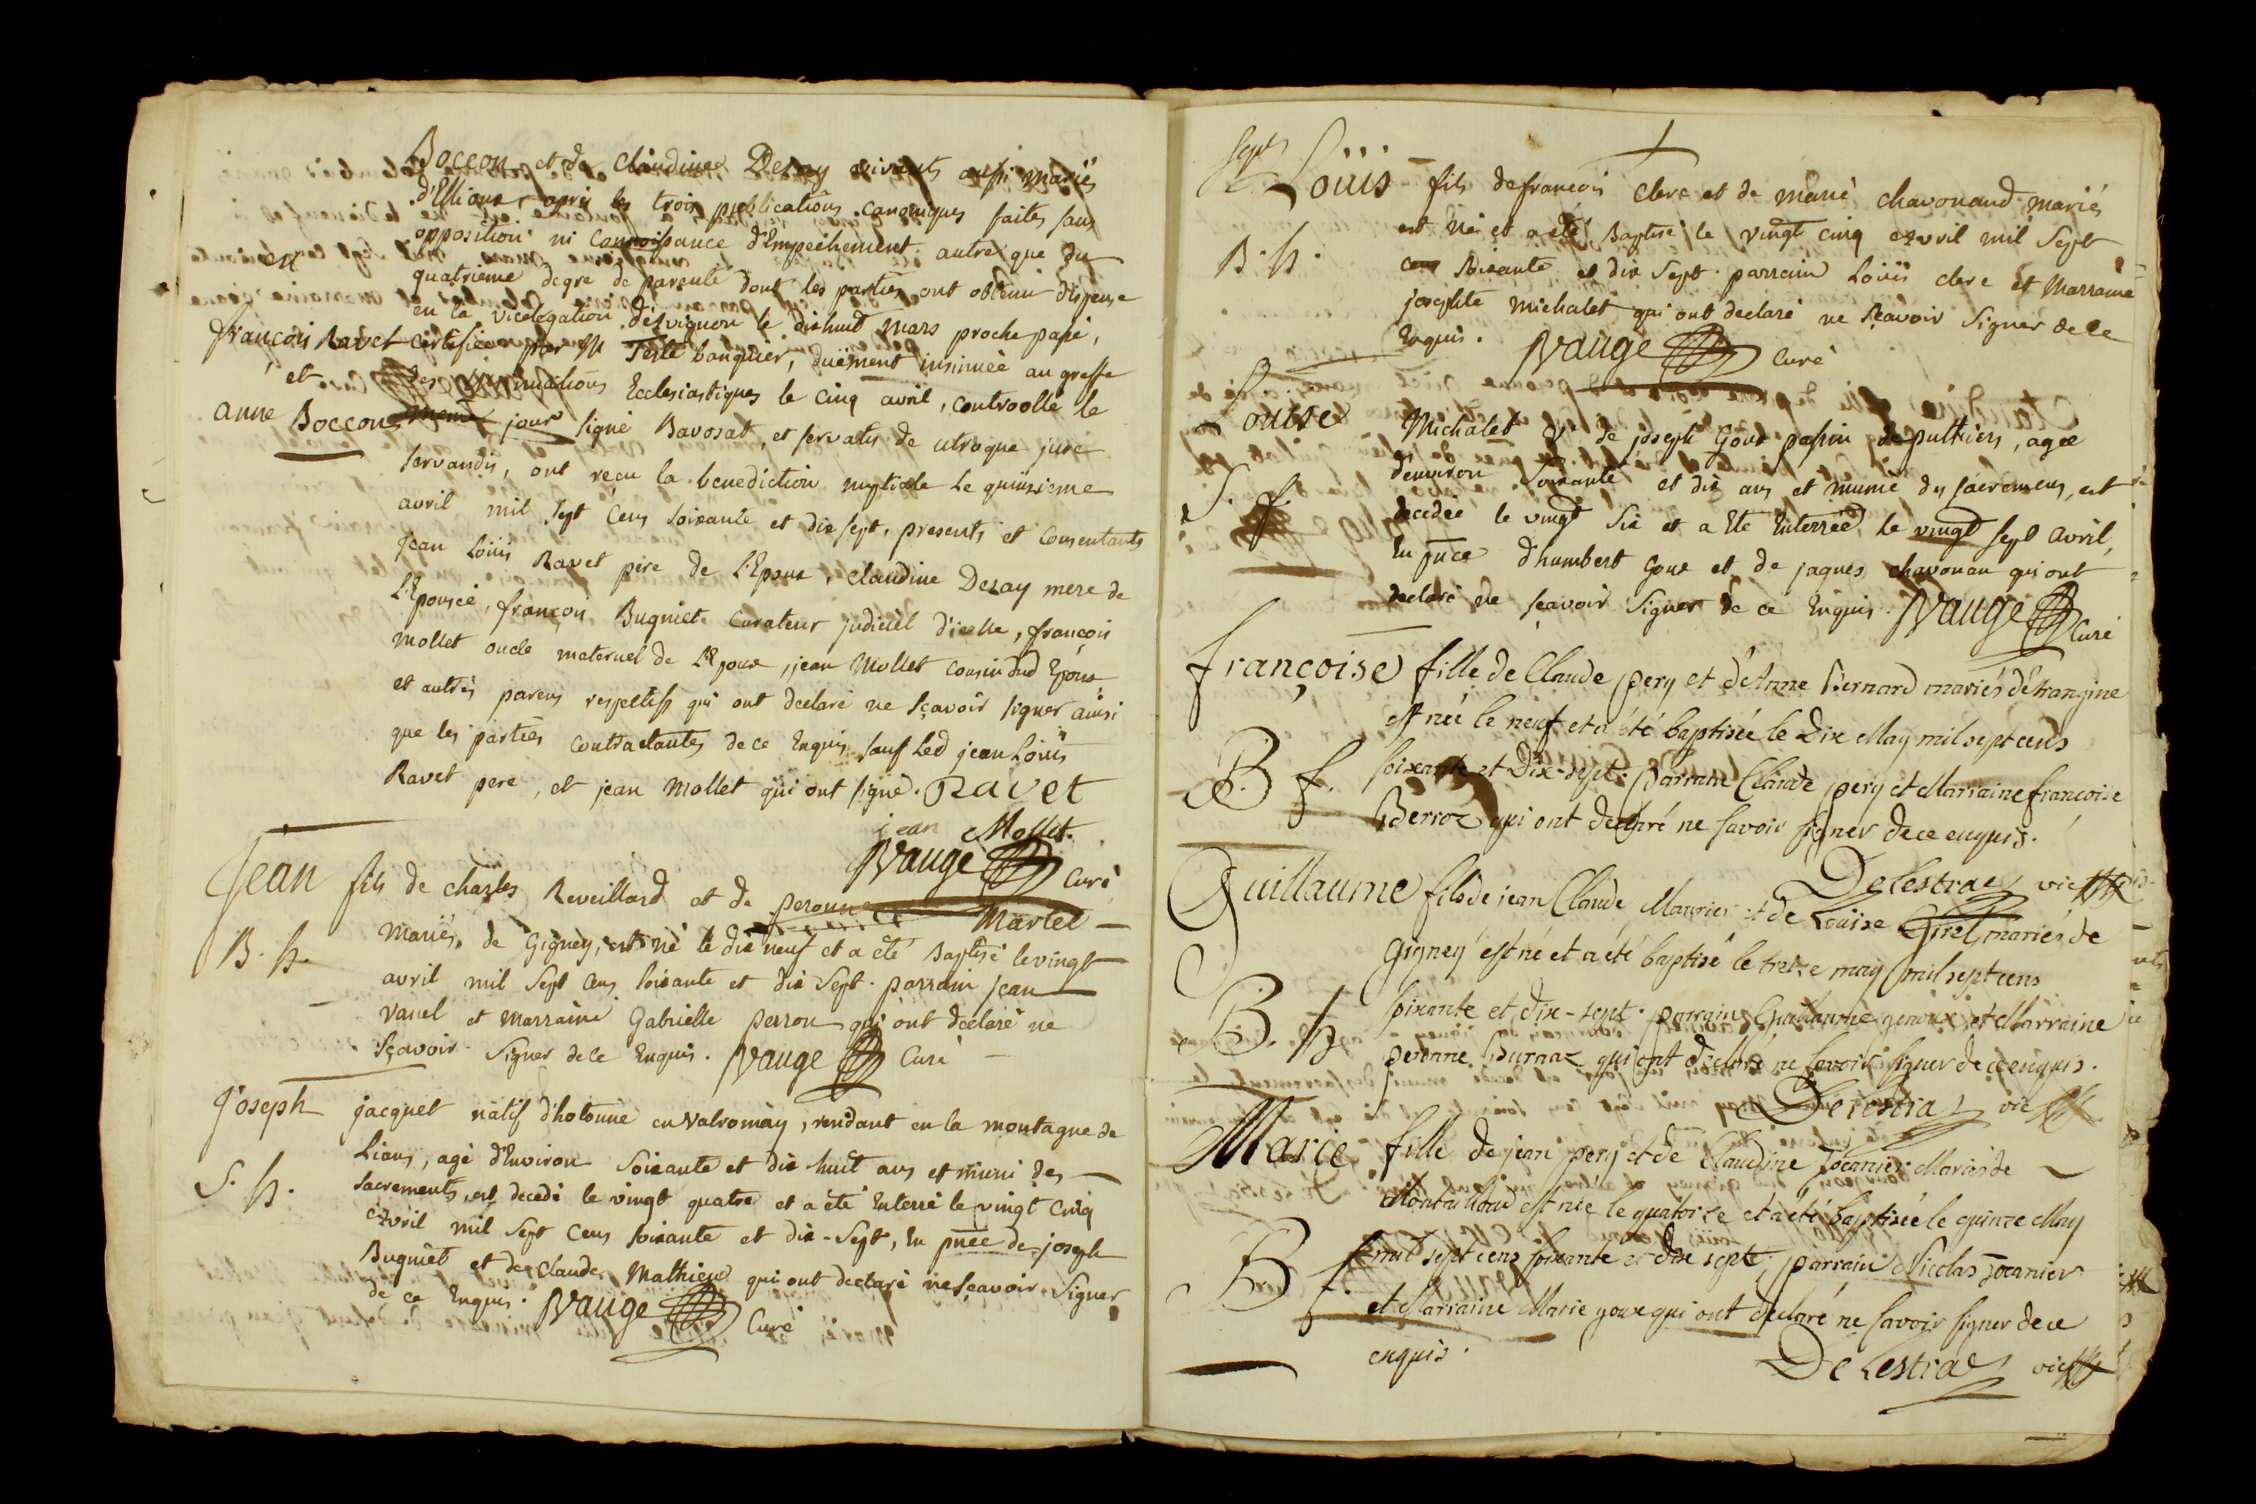 Boccon et de Claudine Dezay vivants aussi mariés
d'Ellioux, après les trois publications canoniques faites sans
opposition ni connoissance d'Empechement autre que du
en
quatrieme degre de parenté dont les parties ont obtenu dispense
en la vicelegation d'avignon le dixhuit mars proche passé,
françois Ravet certifiée par M Teste banquier, duëment insinuée au greffe
et
des insinuations Ecclesiastiques le cinq avril, controollé le
anne Boccon meme jour signé Bavosat, et servatis de utroque jure
servandis, ont reçu la benediction nuptiale le quinzieme
avril mil sept cens soixante et dix sept, presents et consentants
jean Loüis Ravet pere de L'Epoux, claudine Dezay mere de
L'Epousée, françois Buquiet curateur judiciel d'icelle, françois
mollet oncle maternel de L'Epoux, jean Mollet cousin dud Epoux
et autres parens respectifs qui ont declaré ne sçavoir signer ainsi
que les parties contractantes de ce Enquis sauf Led jean Loüis
Ravet pere, et jean Mollet qui ont signé. Ravet
jean Mollet
Vauge Curé
Jean fils de charles Reveillard et de peronne Martel
B. h.
mariés de Gigney, est né le dix neuf et a été Baptisé le vingt
avril mil sept cens soixante et dix sept. parrain jean
vanel et marraine Gabrielle perron qui ont declaré ne
sçavoir signer de ce Enquis. Vauge Curé
Joseph jacquet natif d'hotonne en valromay, rendant en la montagne de
S. h.
Lians, agé d'Environ soixante et dix huit ans et muni des
sacrements, est decedé le vingt quatre et a été Enterré le vingt cinq
avril mil sept cens soixante et dix-sept, En pnce de joseph
Buquiet et de claude Mathieu qui ont declaré ne sçavoir signer
de ce Enquis. Vauge Curé
Loüis fils de francois clerc et de marie chavouand mariés
B. h.
est né et a été Baptisé le vingt cinq avril mil sept
cens soixante et dix sept. parrain Loüis clerc et Marraine
josephte michalet qui ont declaré ne sçavoir signer de ce
Enquis. Vauge Curé
Louise Michalet Ve de joseph Goux passin de pulthiers, agée
S. f.
d'environ soixante et dix ans et munie des sacremens, est
decedée le vingt six et a Eté Enterrée le vingt sept avril,
En pnce d'humbert Goux et de jaques chavouan qui ont
declaré ne sçavoir signer de ce Enquis. Vauge Curé
françoise fille de Claude pery et d'Anne Bernard mariés d'étrangine
est née le neuf et a été baptisée le Dix May mil sept cens
B. f.
soixante et Dix-sept. parrain Claude pery et Marraine françoise
Berroz qui ont declaré ne savoir signer de ce enquis.
Delestraz vic
Guillaume fils de jean Claude Maurier et de Louise Girel mariés de
gigney est né et a été baptisé le treize may mil sept cens
B. h.
soixante et dix-sept. parrain Guillaume genoux et Marraine
peronne Burnaz qui ont declaré ne savoir signer de ce enquis.
Delestraz vic
Marie fille de jean pery et de Claudine Jocanier Mariés de
est née le quatorze et a été baptisée le quinze May
B f.
mil sept cens soixante et dix sept, parrain Nicolas Jocanier
et Marraine Marie goux qui ont declaré ne savoir signer de ce
enquis.
Delestraz vic